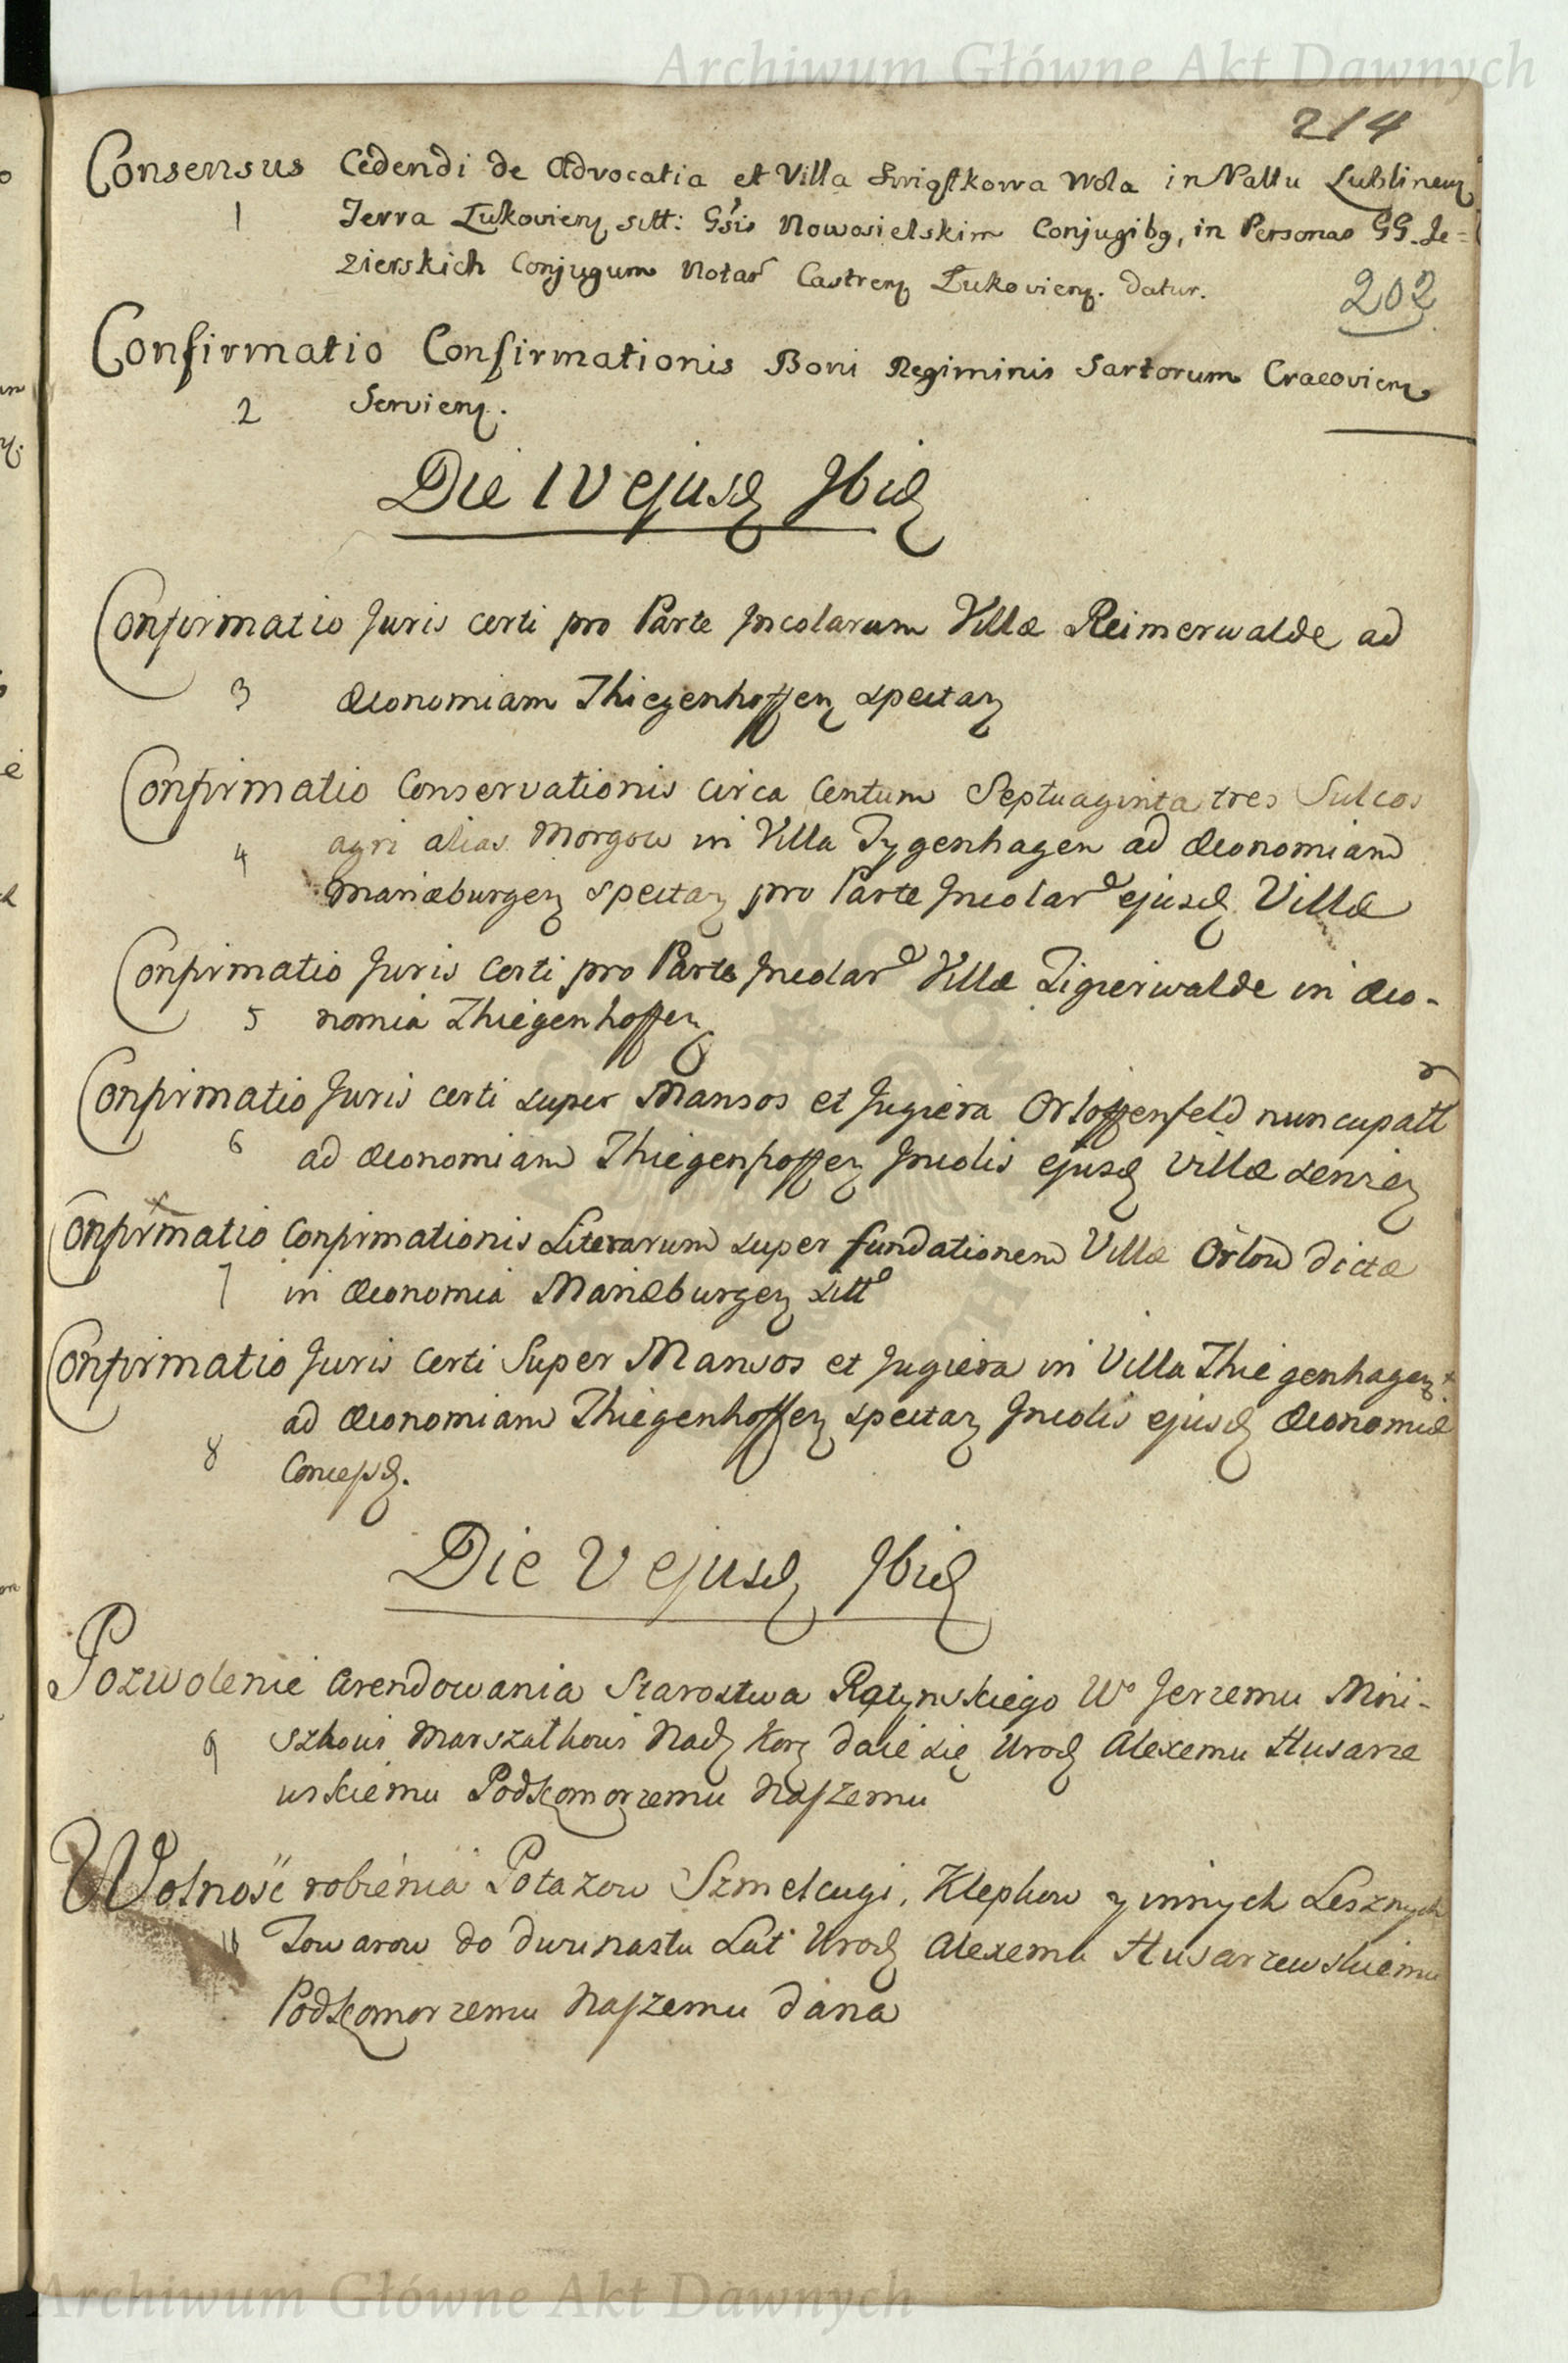 Archiwum Główne Akt Dawnych
214
Consensus Cedendi de Advocatia et Villa Swiątkowa Wola in Pallu Lublinen
1 Terra Łukovien sitt: Gsis Nowosielskim Conjugibq, in Personas GG. Je=
zierskich Conjugum Notar Castren Łukovien. datur.
202
Confirmatio Confirmationis Boni Regiminis Sartorum Cracovien
2 Servien.
Die IV ejusd Ibid
Confirmatio Juris certi pro Parte Incolarum Villæ Reimerwalde ad
3 Œconomiam Thiegenhoffen spectan
Confirmatio Conservationis circa Centum Septuaginta tres Sulcos
4 agri alias Morgow in Villa Tygenhagen ad Œconomiam
Mariæburgen spectan pro Parte Incolar ejusd Villæ
Confirmatio Juris Certi pro Parte Incolar Villæ Tigierwalde in Œco-
5 nomia Thiegenhoffen
Confirmatio Juris certi super Mansos et Jugiera Orloffenfeld nuncupatt
6 ad Œconomiam Thiegenhoffen Incolis ejusd Villæ servien
Confirmatio Confirmationis Literarum super fundationem Villæ Orlow dictæ
7 in Œconomia Mariæburgen sitt
Confirmatio Juris Certi Super Mansos et Jugiera in Villa Thiegenhagen
ad Œconomiam Thiegenhoffen spectan Incolis ejusd Œconomiæ
8 Concess.
Die V ejusd Ibid
Pozwolenie Arendowania Starostwa Ratynskiego Wo Jerzemu Mni-
9 szkowi Marszałkowi Nad Kor daie się Urod Alexemu Husarze
wskiemu Podkomorzemu Naszemu
Wolność robienia Potazow Szmelcugi, Klepkow y innych Lesznych
10 Towarow do dwunastu Lat Urod Alexemu Husarzewskiemu
Podkomorzemu Naszemu dana
Archiwum Główne Akt Dawnych